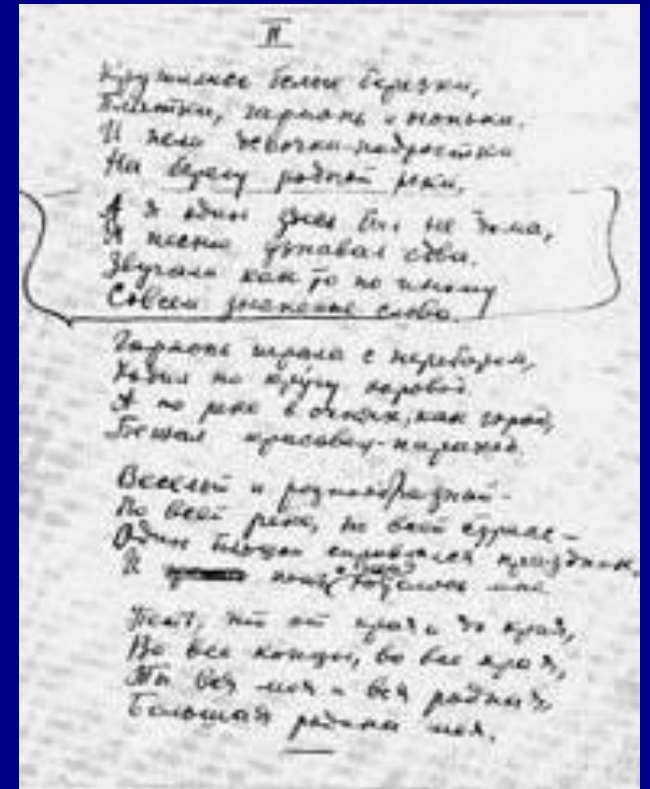 II
Кружились белые березки,
Платки, гармонь и огоньки.
И пели девочки-подростки
На берегу родной реки.
И я один здесь был не дома,
Я песню узнавал едва.
Звучали как то по иному
Совсем знакомые слова.
Гармонь играла с перебором,
Ходил по кругу хоровод.
А по реке в огнях, как город,
Бежал красавец-пароход.
Веселый и разнообразный -
По всей реке, по всей стране -
Один большой справлялся праздник,
И петь хотелось мне
Петь, что от края и до края,
Во все концы, во все края,
Ты вся моя и вся родная,
Большая родина моя.